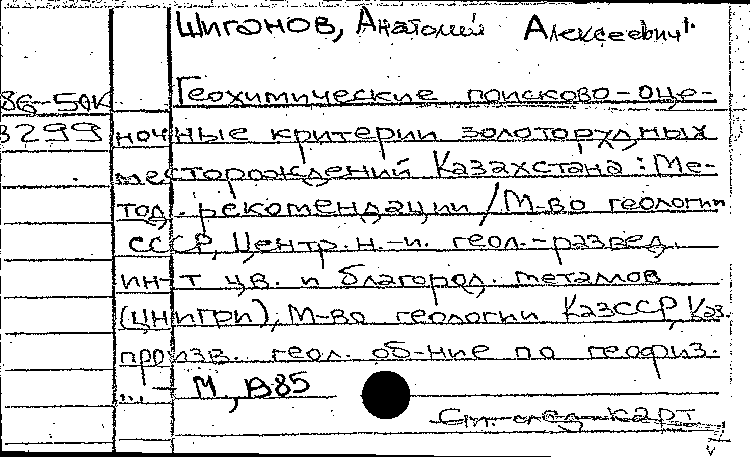 Шиганов, Анатолий Алексеевич
86-5ДК Геохимические поисково-оце-
3299 ночные критерии золоторудных
месторождений Казахстана: Ме-
тод. рекомендации / М-во геологии
СССР, Центр. н.-и. геол.-развед.
ин-т цв. и благород. металлов
(ЦНИГРИ), М-во геологии КазССР, Каз.
произв. геол. об-ние по геофиз.
... – М, 1985
См. след. карт